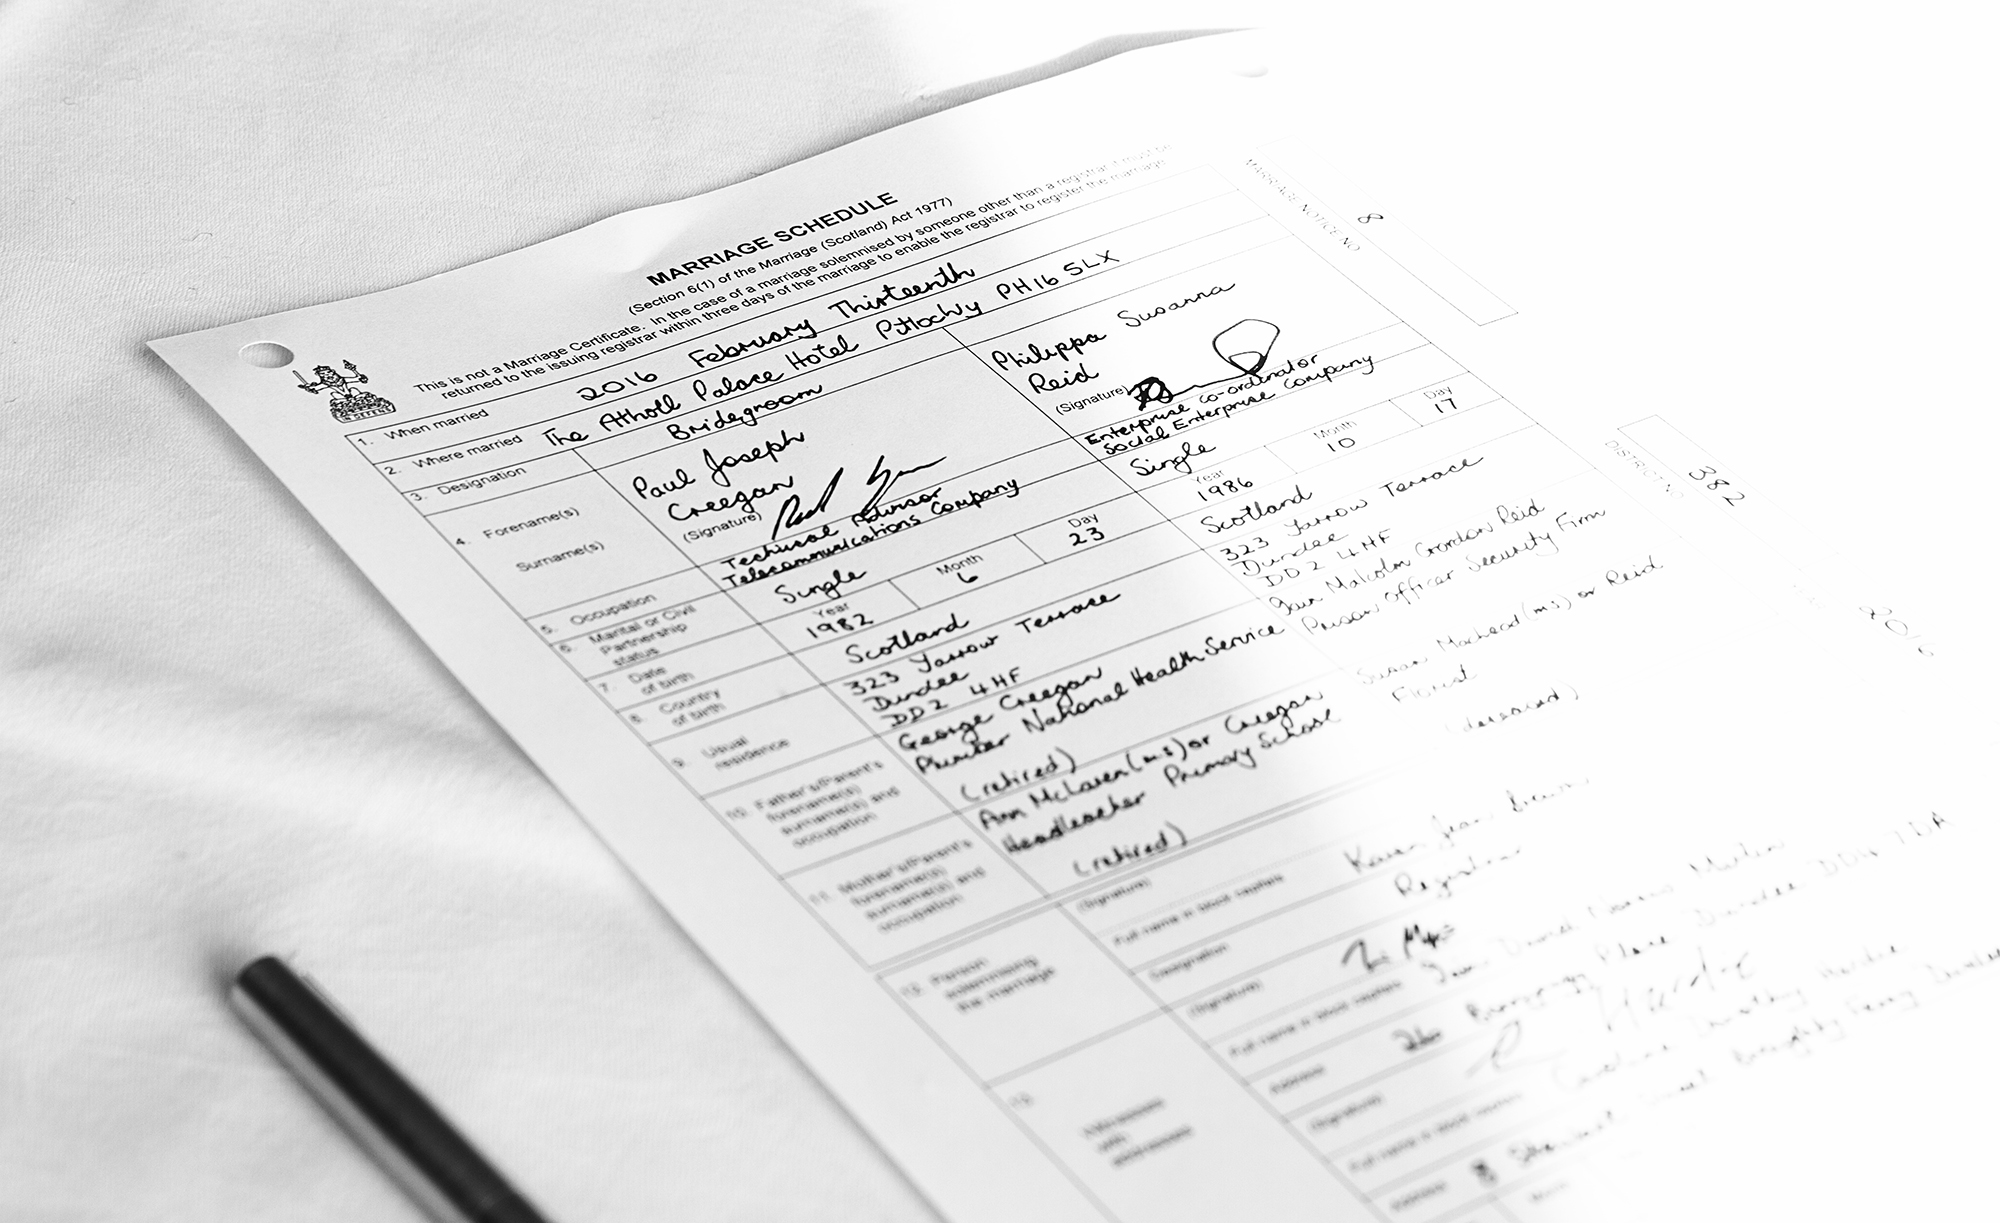 MARRIAGE SCHEDULE
(Section 6(1) of the Marriage (Scotland) Act 1977)
This is not a Marriage Certificate. In the case of a marriage solemnised by someone other than a registrar it must be
returned to the issuing registrar within three days of the marriage to enable the registrar to register the marriage
MARRIAGE NOTICE NO
8
DISTRICT N
382
1. When married 2016 February Thirteenth
2. Where married The Atholl Palace Hotel Pitlochry PH16 5LX
3. Designation Bridegroom
4. Forename(s) Paul Joseph Philippa Susanna
Surname(s) Creegan Reid
(Signature) (Signature)
5. Occupation Technical Advisor Enterprise co-ordinator
Telecommunications Company Social Enterprise Company
6. Marital or Civil Partnership status Single Single
7. Date of birth Year 1982 Month 6 Day 23 Year 1986 Month 10 Day 17
8. Country of birth Scotland Scotland
9. Usual residence 323 Yarrow Terrace 323 Yarrow Terrace
Dundee Dundee
DD2 4HF DD2 4HF
10. Father's/Parent's forename(s) surname(s) and occupation George Creegan Malcolm Gordon Reid
National Health Service Prison Officer Security Firm
(retired)
11. Mother's/Parent's forename(s) surname(s) and occupation Ann McLaren (m.s) or Creegan Susan (m.s) or Reid
Headteacher Primary School Florist
(retired) (deceased)
12. Person solemnising the marriage (Signature)
Full name in block capitals Karen Jean
Designation Registrar
13. Witnesses with addresses (Signature)
Full name in block capitals David
Address Place Dundee
(Signature)
Full name in block capitals Dorothy Hardie
Address 8 Broughty Ferry